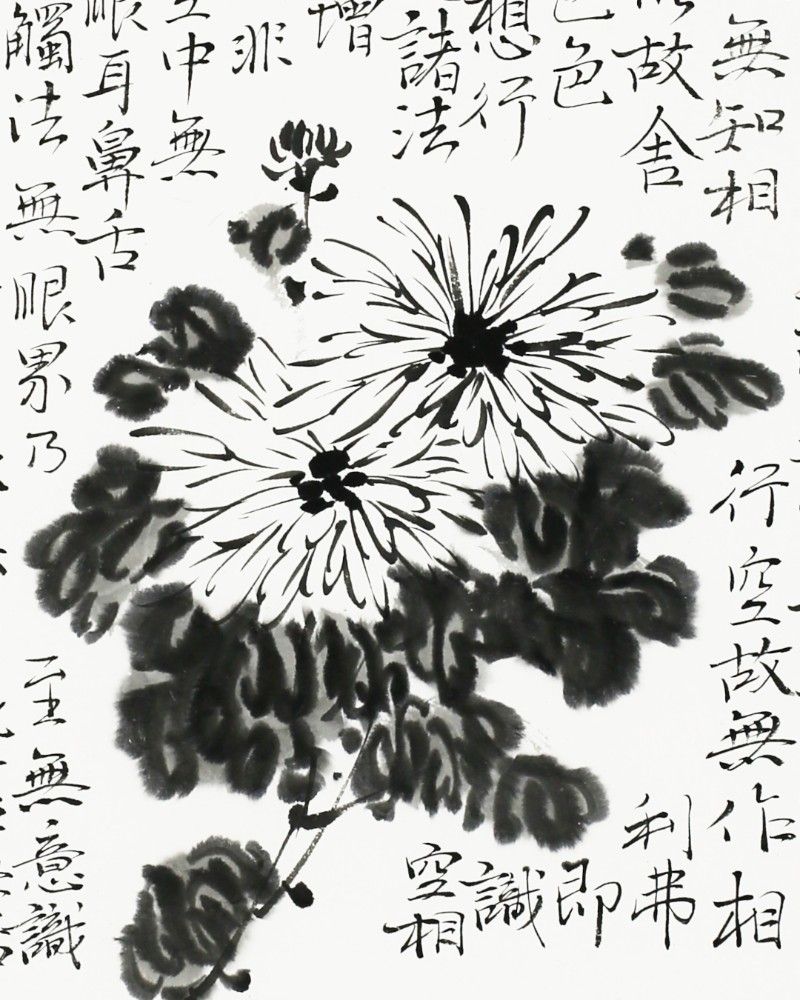 無知相行空故無作相
故舍利弗
色即
想行識
諸法空相
增
非
中無
眼耳鼻舌
觸法無眼界乃至無意識